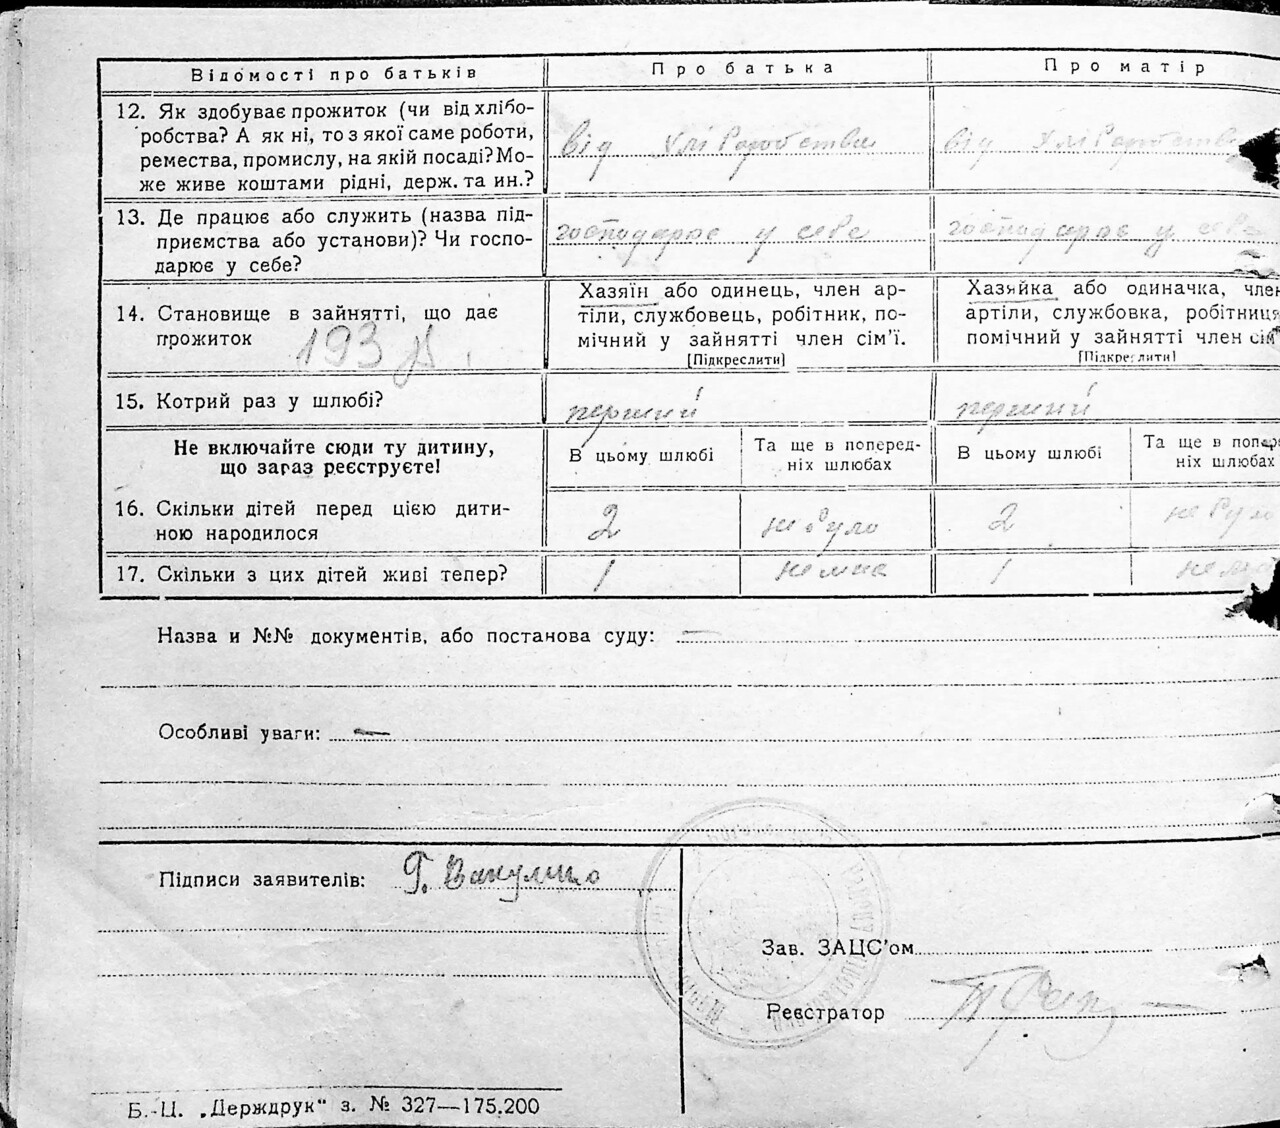 Відомості про батьків
Про батька
Про матір
12. Як здобуває прожиток (чи від хлібо-
робства? А як ні, то з якої саме роботи,
ремества, промислу, на якій посаді? Мо-
же живе коштами рідні, держ. та ин.?
від хліборобства
від хліборобства
13. Де працює або служить (назва під-
приємства або установи)? Чи госпо-
дарює у себе?
господарює у себе
господарює у себе
14. Становище в зайнятті, що дає
прожиток
193
Хазяїн або одинець, член ар-
тіли, службовець, робітник, по-
мічний у зайнятті член сім'ї.
[Підкреслити]
Хазяйка або одиначка, член
артіли, службовка, робітниця
помічний у зайнятті член сім'
[Підкреслити]
15. Котрий раз у шлюбі?
перший
перший
Не включайте сюди ту дитину,
що зараз реєструєте!
В цьому шлюбі
Та ще в поперед-
ніх шлюбах
В цьому шлюбі
Та ще в попере
ніх шлюбах
16. Скільки дітей перед цією дити-
ною народилося
2
не було
2
не було
17. Скільки з цих дітей живі тепер?
1
немає
1
Назва и №№ документів, або постанова суду: —
Особливі уваги: —
Підписи заявителів: Г. Вакуленко
Зав. ЗАЦС'ом
Реєстратор
Б.-Ц. „Держдрук" з. № 327—175.200